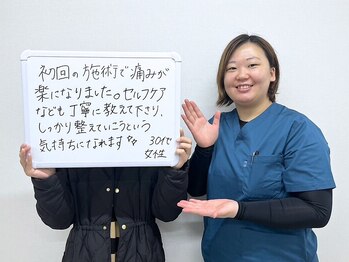 初回の施術で痛みが
楽になりました。セルフケア
なども丁寧に教えて下さり、
しっかり整えていこうという
気持ちになれます
30代
女性